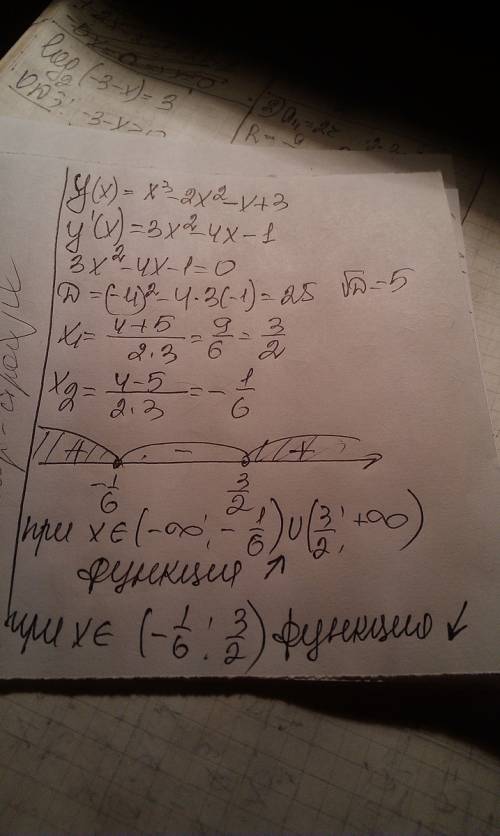 log₂(-3-x)=3
-3-x>
y(x)=x³-2x²-x+3
y'(x)=3x²-4x-1
3x²-4x-1=0
D=(-4)²-4·3(-1)=25 √D=5
x₁=\frac{4+5}{2·3}=\frac{9}{6}=\frac{3}{2}
x₂=\frac{4-5}{2·3}=-\frac{1}{6}
+ - +
-\frac{1}{6} \frac{3}{2}
при x∈(-∞;-\frac{1}{6})∪(\frac{3}{2};+∞)
функция ↗
при x∈(-\frac{1}{6};\frac{3}{2}) функцию ↙